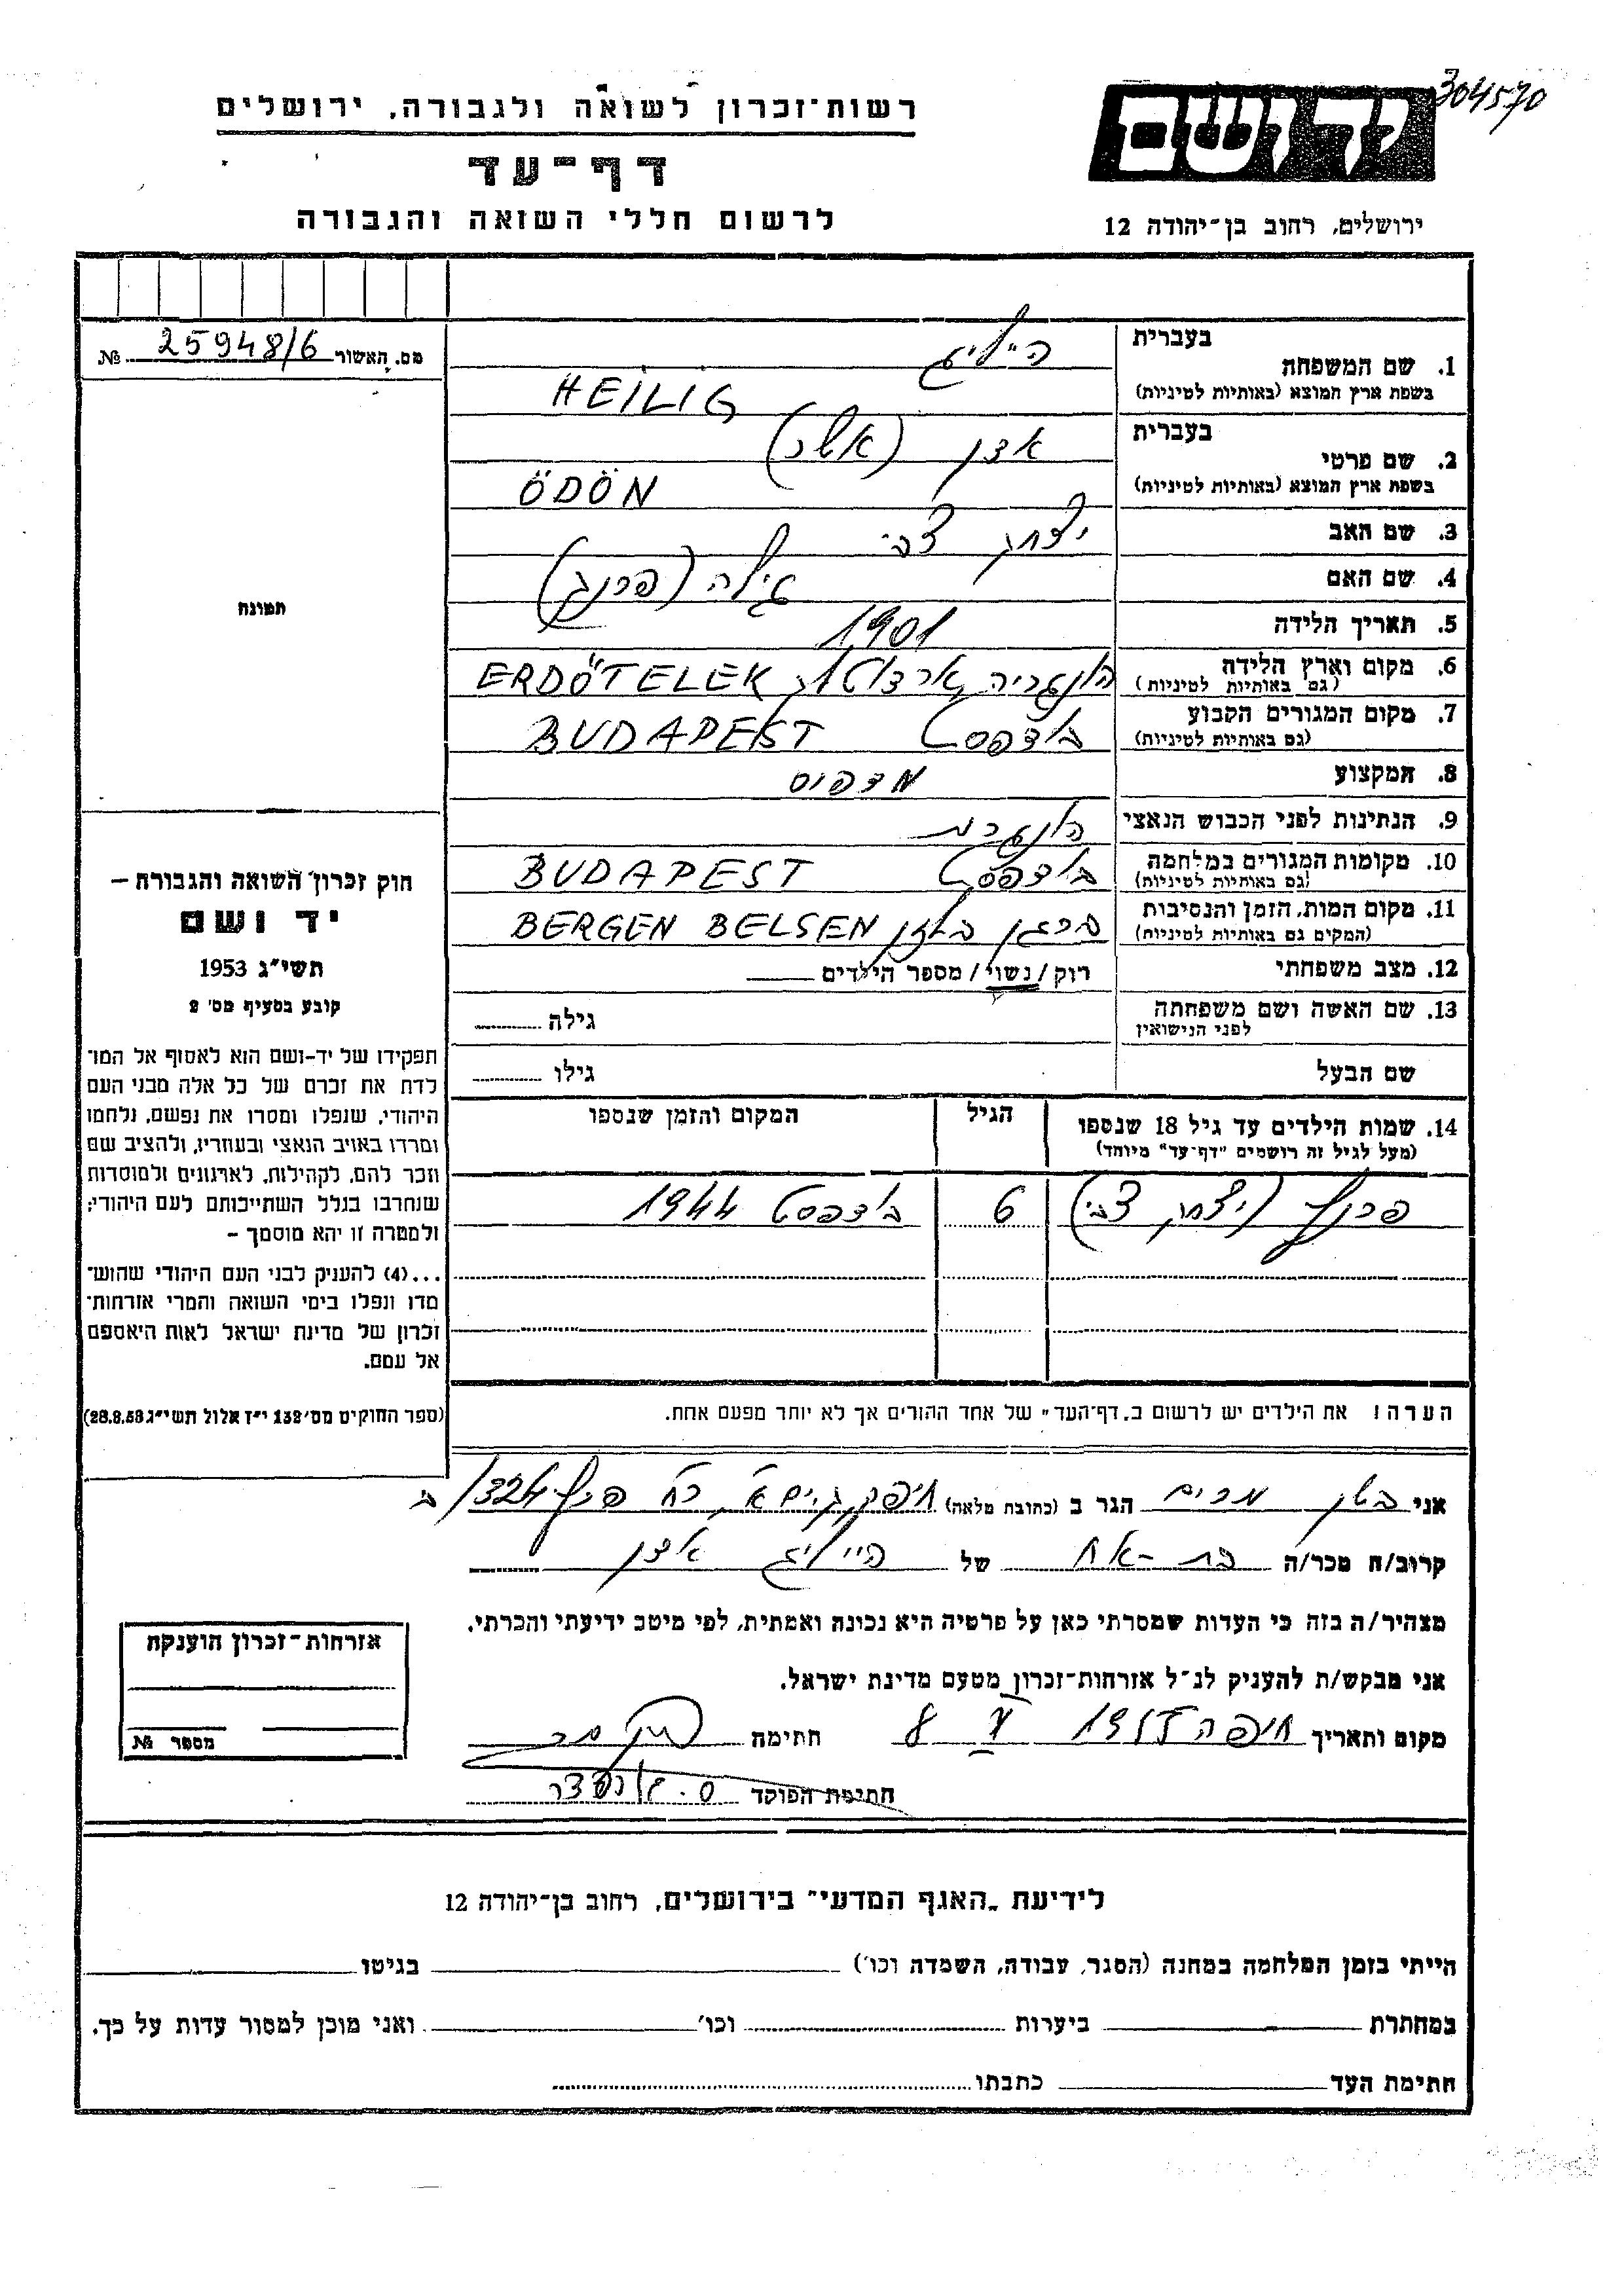 304570
יד ושם
רשות־זכרון לשואה ולגבורה, ירושלים
דף־עד
לרשום חללי השואה והגבורה
ירושלים, רחוב בן־יהודה 12
מס. האשור 25948/6 №
תמונה
חוק זכרון השואה והגבורה –
יד ושם
תשי״ג 1953
קובע בסעיף מס' 2
תפקידו של יד-ושם הוא לאסוף אל המו־
לדת את זכרם של כל אלה מבני העם
היהודי, שנפלו ומסרו את נפשם, נלחמו
ומרדו באויב הנאצי ובעוזריו, ולהציב שם
וזכר להם, לקהילות, לארגונים ולמוסדות
שנחרבו בגלל השתייכותם לעם היהודי;
ולמטרה זו יהא מוסמך –
...(4) להעניק לבני העם היהודי שהוש־
מדו ונפלו בימי השואה והמרי אזרחות־
זכרון של מדינת ישראל לאות היאספם
אל עמם.
(ספר החוקים מס' 132 י״ז אלול תשי״ג 28.8.53)
בעברית הייליג
1. שם המשפחה
בשפת ארץ המוצא (באותיות לטיניות) HEILIG
בעברית אדן (אשר)
2. שם פרטי
בשפת ארץ המוצא (באותיות לטיניות) ÖDÖN
3. שם האב יצחק צבי
4. שם האם גילה (פרנג)
5. תאריך הלידה 1901
6. מקום וארץ הלידה הונגריה ERDÖTELEK
(גם באותיות לטיניות)
7. מקום המגורים הקבוע בודפסט BUDAPEST
(גם באותיות לטיניות)
8. המקצוע מדפיס
9. הנתינות לפני הכבוש הנאצי הונגרית
10. מקומות המגורים במלחמה בודפסט BUDAPEST
(גם באותיות לטיניות)
11. מקום המות, הזמן והנסיבות ברגן בלזן BERGEN BELSEN
(המקום גם באותיות לטיניות)
12. מצב משפחתי רוק / נשוי / מספר הילדים
13. שם האשה ושם משפחתה גילה
לפני הנישואין
שם הבעל גילו
14. שמות הילדים עד גיל 18 שנספו הגיל המקום והזמן שנספו
(מעל לגיל זה רושמים "דף־עד" מיוחד)
פרנץ (יצחק צבי) 6 בודפסט 1944
הערה! את הילדים יש לרשום ב„דף־העד" של אחד ההורים אך לא יותר מפעם אחת.
אני בטן מרים הגר ב (כתובת מלאה) חיפה, רח 324/ב
קרוב/ה מכר/ה בת-אח של הייליג אדן
מצהיר/ה בזה כי העדות שמסרתי כאן על פרטיה היא נכונה ואמתית, לפי מיטב ידיעתי והכרתי.
אני מבקש/ת להעניק לנ״ל אזרחות־זכרון מטעם מדינת ישראל.
מקום ותאריך חיפה 1955 חתימה
חתימת הפוקד
אזרחות־זכרון הוענקה
מספר №
לידיעת „האגף המדעי" בירושלים, רחוב בן־יהודה 12
הייתי בזמן המלחמה במחנה (הסגר, עבודה, השמדה וכו') בגיטו
במחתרת ביערות וכו' ואני מוכן למסור עדות על כך.
חתימת העד כתבתו